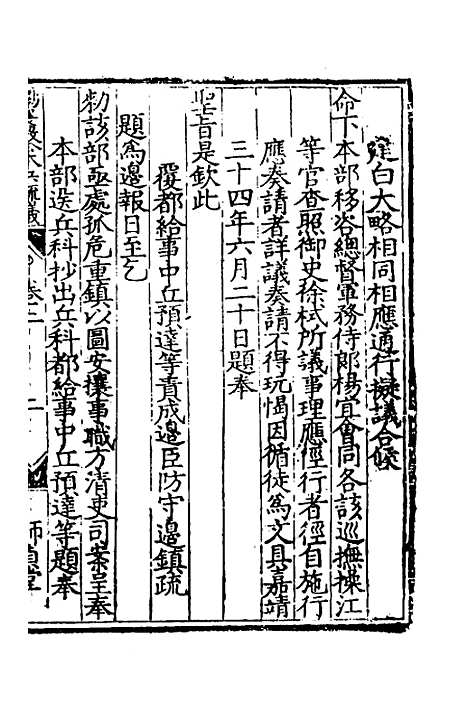 建白大略相同相應通行擬議合候
命下本部移咨總督軍務侍郎楊宜會同各該巡撫操江
等官查照御史徐栻所議事理應徑行者徑自施行
應奏請者詳議奏請不得玩愒因循徒為文具嘉靖
三十四年六月二十日題奉
聖旨是欽此
覆都給事中丘預達等責成邊臣防守邊鎮疏
題為邊報日至乞
勑該部亟處孤危重鎮以圖安攘事職方清吏司案呈奉
本部送兵科抄出兵科都給事中丘預達等題奉